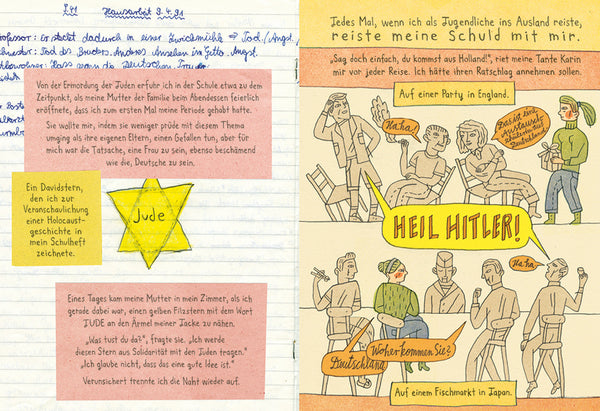 Hausarbeit 9.4.91
Von der Ermordung der Juden erfuhr ich in der Schule etwa zu dem
Zeitpunkt, als meine Mutter der Familie beim Abendessen feierlich
eröffnete, dass ich zum ersten Mal meine Periode gehabt hatte.
Sie wollte mir, indem sie weniger prüde mit diesem Thema
umging als ihre eigenen Eltern, einen Gefallen tun, aber für
mich war die Tatsache, eine Frau zu sein, ebenso beschämend
wie die, Deutsche zu sein.
Ein Davidstern,
den ich zur
Veranschaulichung
einer Holocaust-
geschichte in
mein Schulheft
zeichnete.
Jude
Eines Tages kam meine Mutter in mein Zimmer, als ich
gerade dabei war, einen gelben Filzstern mit dem Wort
JUDE an den Ärmel meiner Jacke zu nähen.
„Was tust du da?", fragte sie. „Ich werde
diesen Stern aus Solidarität mit den Juden tragen."
„Ich glaube nicht, dass das eine gute Idee ist."
Verunsichert trennte ich die Naht wieder auf.
Jedes Mal, wenn ich als Jugendliche ins Ausland reiste,
reiste meine Schuld mit mir.
„Sag doch einfach, du kommst aus Holland!", riet meine Tante Karin
mir vor jeder Reise. Ich hätte ihren Ratschlag annehmen sollen.
Auf einer Party in England.
Haha!
Das ist eine
Austausch-
schülerin aus
Deutschland!
HEIL HITLER!
Haha
Woher kommen Sie?
Deutschland
Auf einem Fischmarkt in Japan.